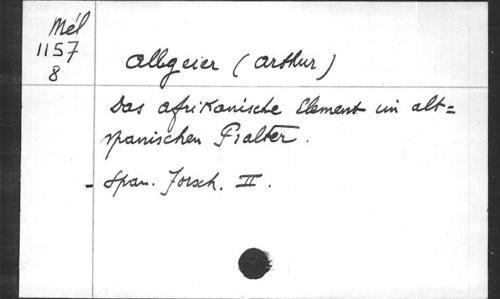 Mél
1157
8
Allgeier (Arthur)
Das afrikanische Element im alt=
spanischen Psalter.
- Span. Forsch. II.